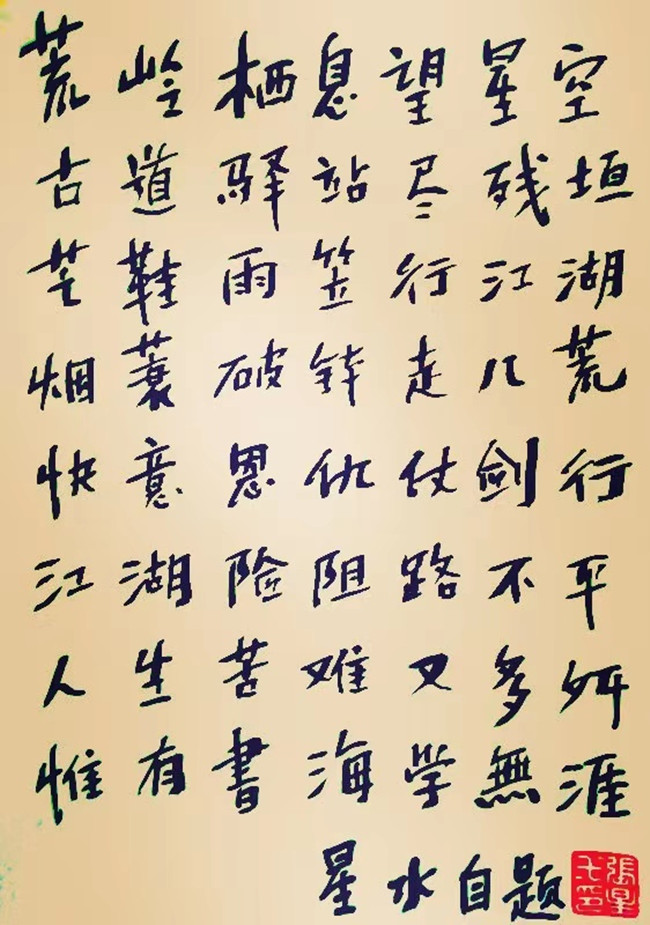 荒岭栖息望星空
古道驿站尽残垣
芒鞋雨笠行江湖
烟蓑破钵走八荒
快意恩仇仗剑行
江湖险阻路不平
人生苦难又多舛
惟有書海学無涯
星水自题